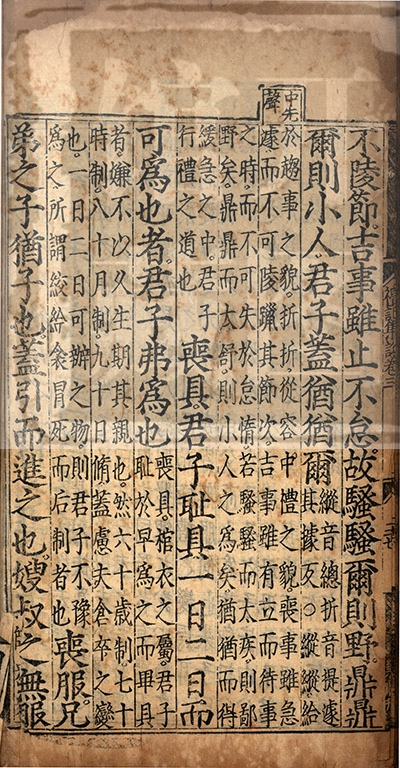 中先
聲
不陵節吉事雖止不怠故騷騷爾則野鼎鼎
爾則小人君子蓋猶猶爾
縱音總折音提遽
其據反○縱縱給
於趨事之貌折折從容中禮之貌喪事雖急
遽而不可陵躐其節次吉事雖有立而待事
之時而不可失於怠惰若騷騷而太疾則鄙
野矣鼎鼎而太舒則小人之爲矣猶猶而得
緩急之中君子
行禮之道也
喪具君子恥具一日二日而
可爲也者君子弗爲也
喪具棺衣之屬君子
恥於早爲之而畢具
者嫌不以久生期其親也然六十歲制七十
時制八十月制九十日脩蓋慮夫倉卒之變
也一日二日可辦之物則君子不豫
爲之所謂絞紟衾冒死而后制者也
喪服兄
弟之子猶子也蓋引而進之也嫂叔之無服